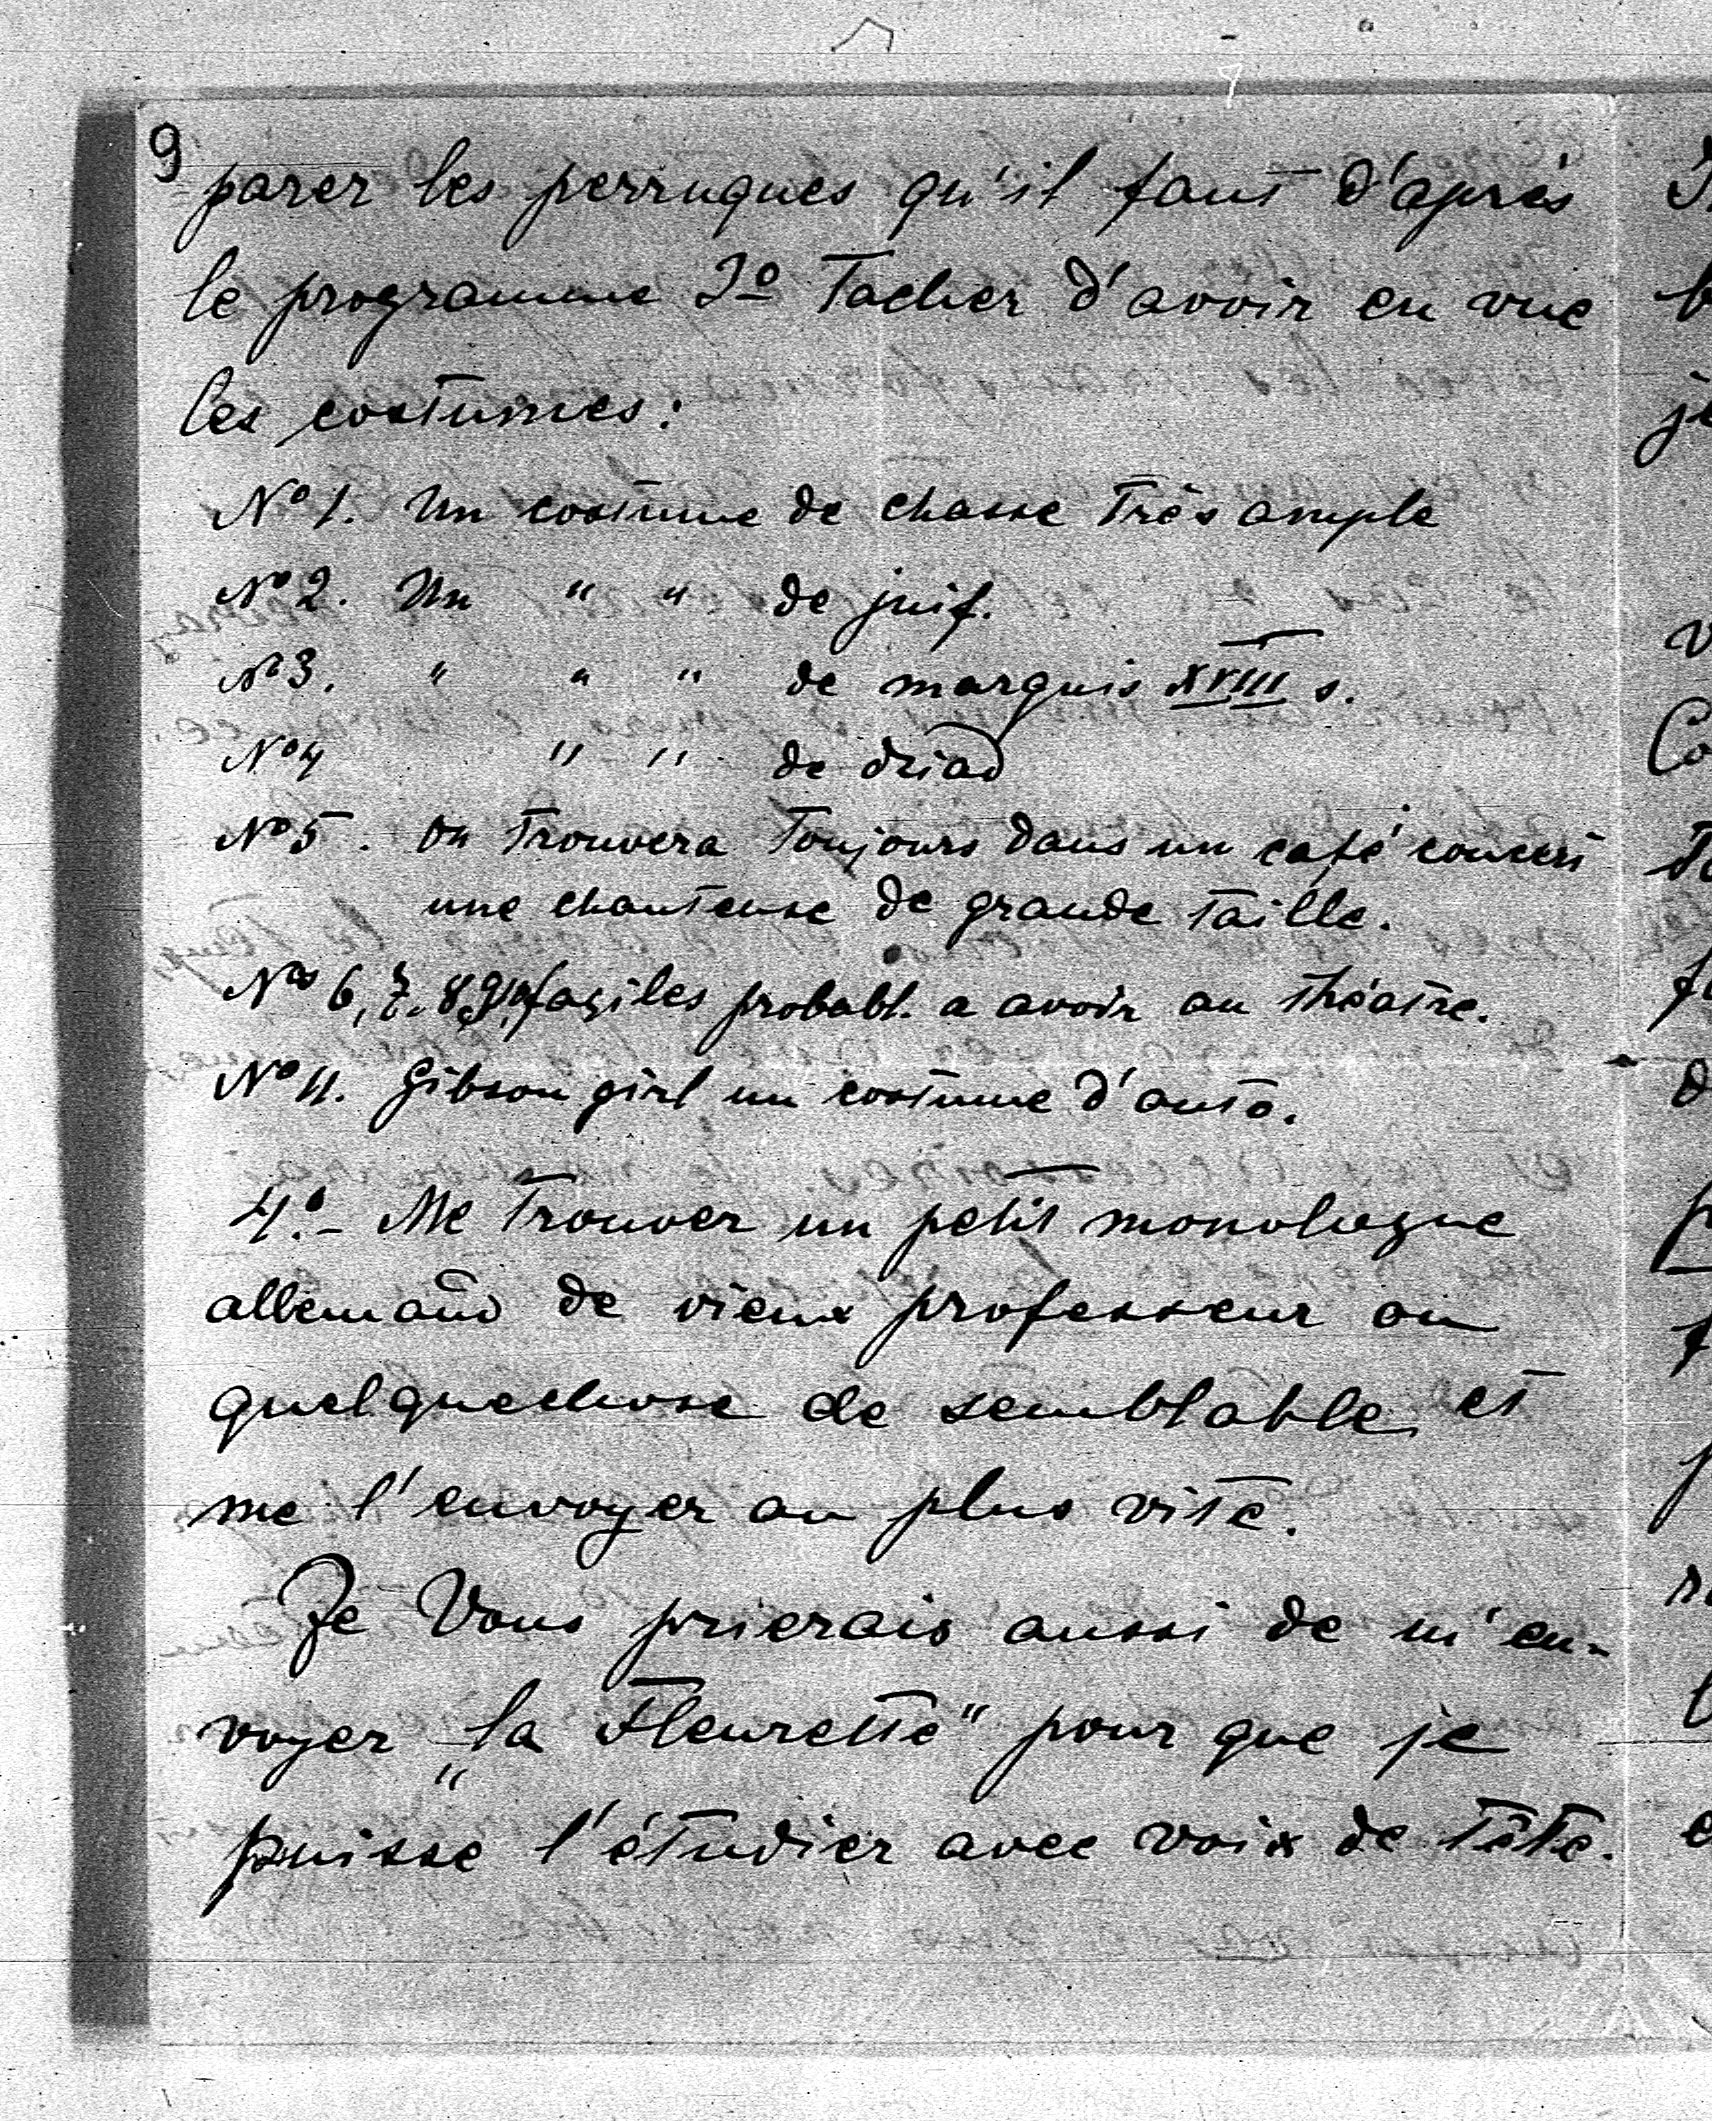 9
parer les perruques qu'il faut d'après
le programme 3º Tacher d'avoir en vue
les costumes:
Nº 1. Un costume de chasse très ample
Nº 2. Un " " de juif.
Nº 3. " " " de marquis XVIII s.
Nº 4 " " de driad
Nº 5. On trouvera toujours dans un café concert
une chanteuse de grande taille.
Nos 6, 7, 8, 9, 10 faziles probabl. a avoir au théatre.
Nº 11. Gibson girl un costume d'auto.
4º.- Me trouver un petit monologue
allemand de vieux professeur ou
quelquechose de semblable et
me l'envoyer au plus vite.
Je Vous prierais aussi de m'en-
voyer „la Fleurette" pour que je
puisse l'étudier avec voix de tête.